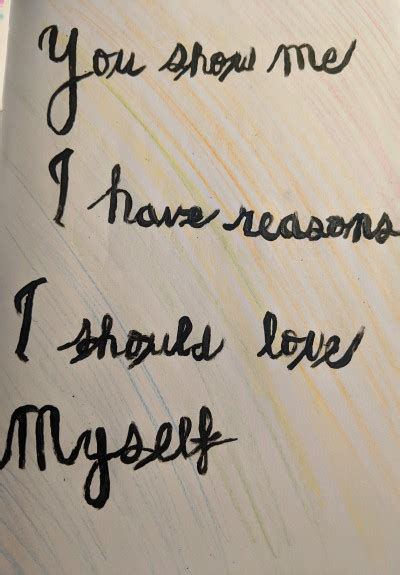 You show me
I have reasons
I should love
Myself